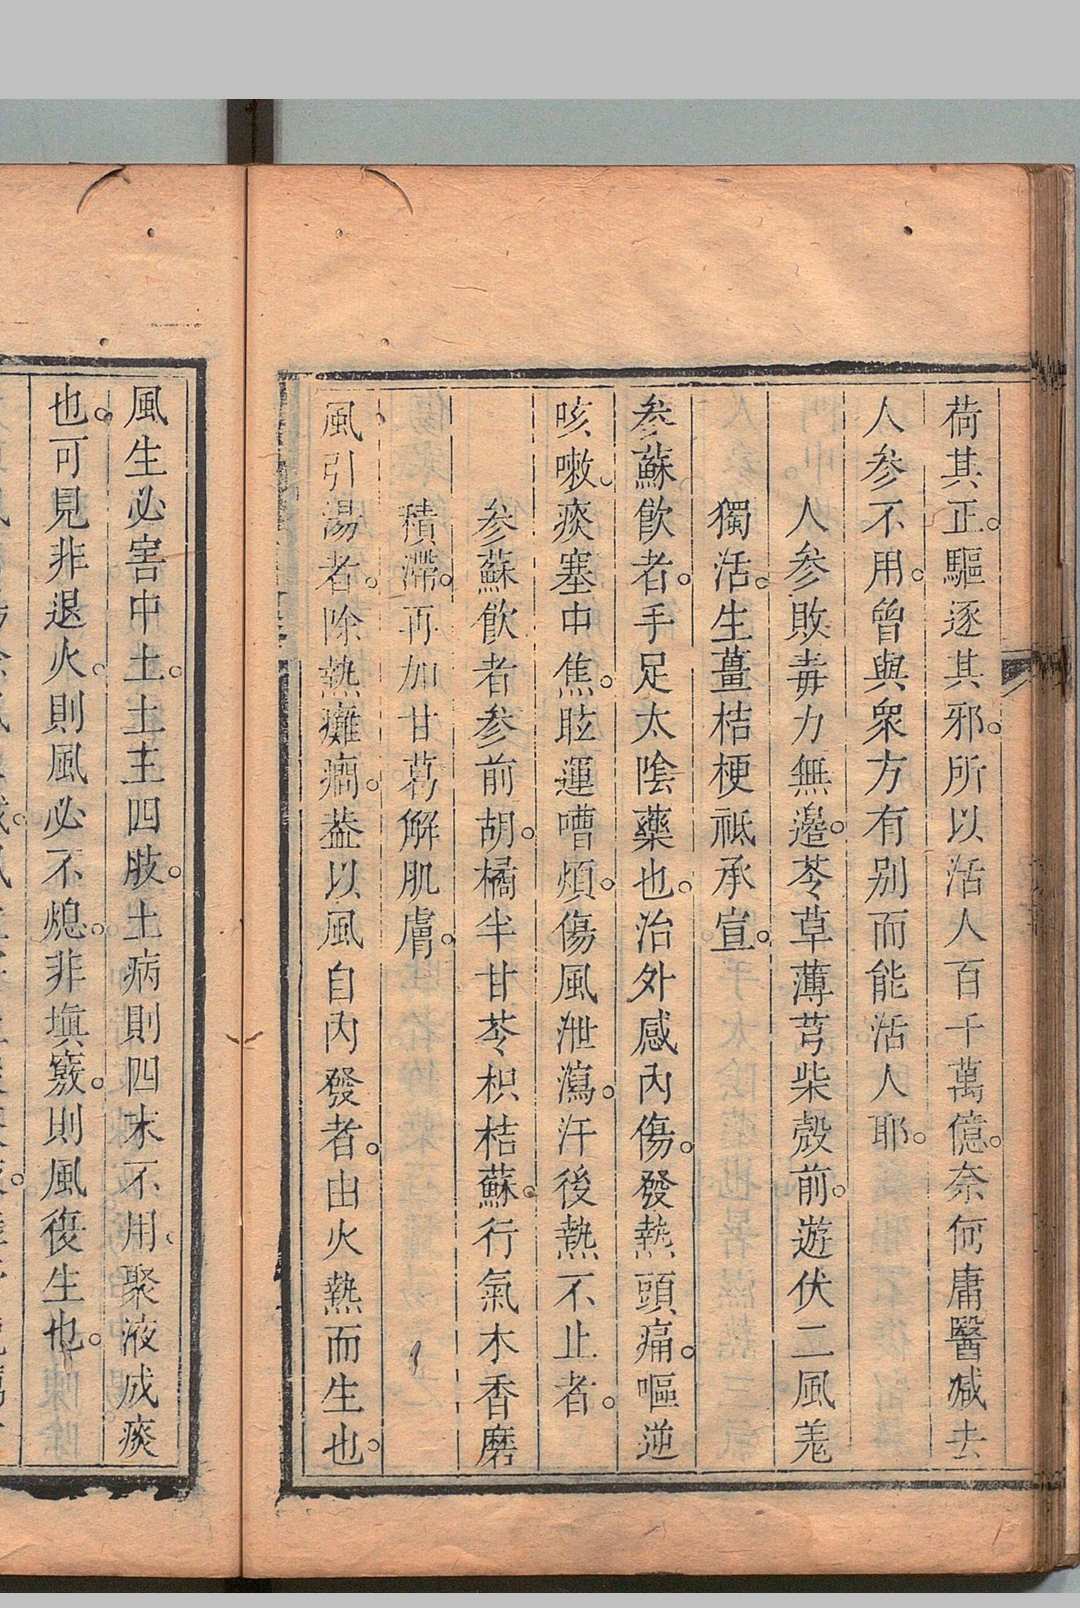 荷其正。驅逐其邪。所以活人百千萬億。奈何庸醫減去
人参不用。曾與衆方有别而能活人耶。
人参敗毒力無邉。芩草薄芎柴殼前。遊伏二風羗
獨活。生薑桔梗祗承宣。
参蘇飲者。手足太陰藥也。治外感內傷。發熱頭痛。嘔逆
咳嗽。痰塞中焦。眩運嘈煩。傷風泄瀉。汗後熱不止者。
参蘇飲者参前胡。橘半甘芩枳桔蘇。行氣木香磨
積滯。再加甘葛解肌膚。
風引湯者。除熱癱癎。葢以風自內發者。由火熱而生也。
風生必害中土。土主四肢。土病則四末不用。聚液成痰
也。可見非退火。則風必不熄。非塡竅。則風復生也。